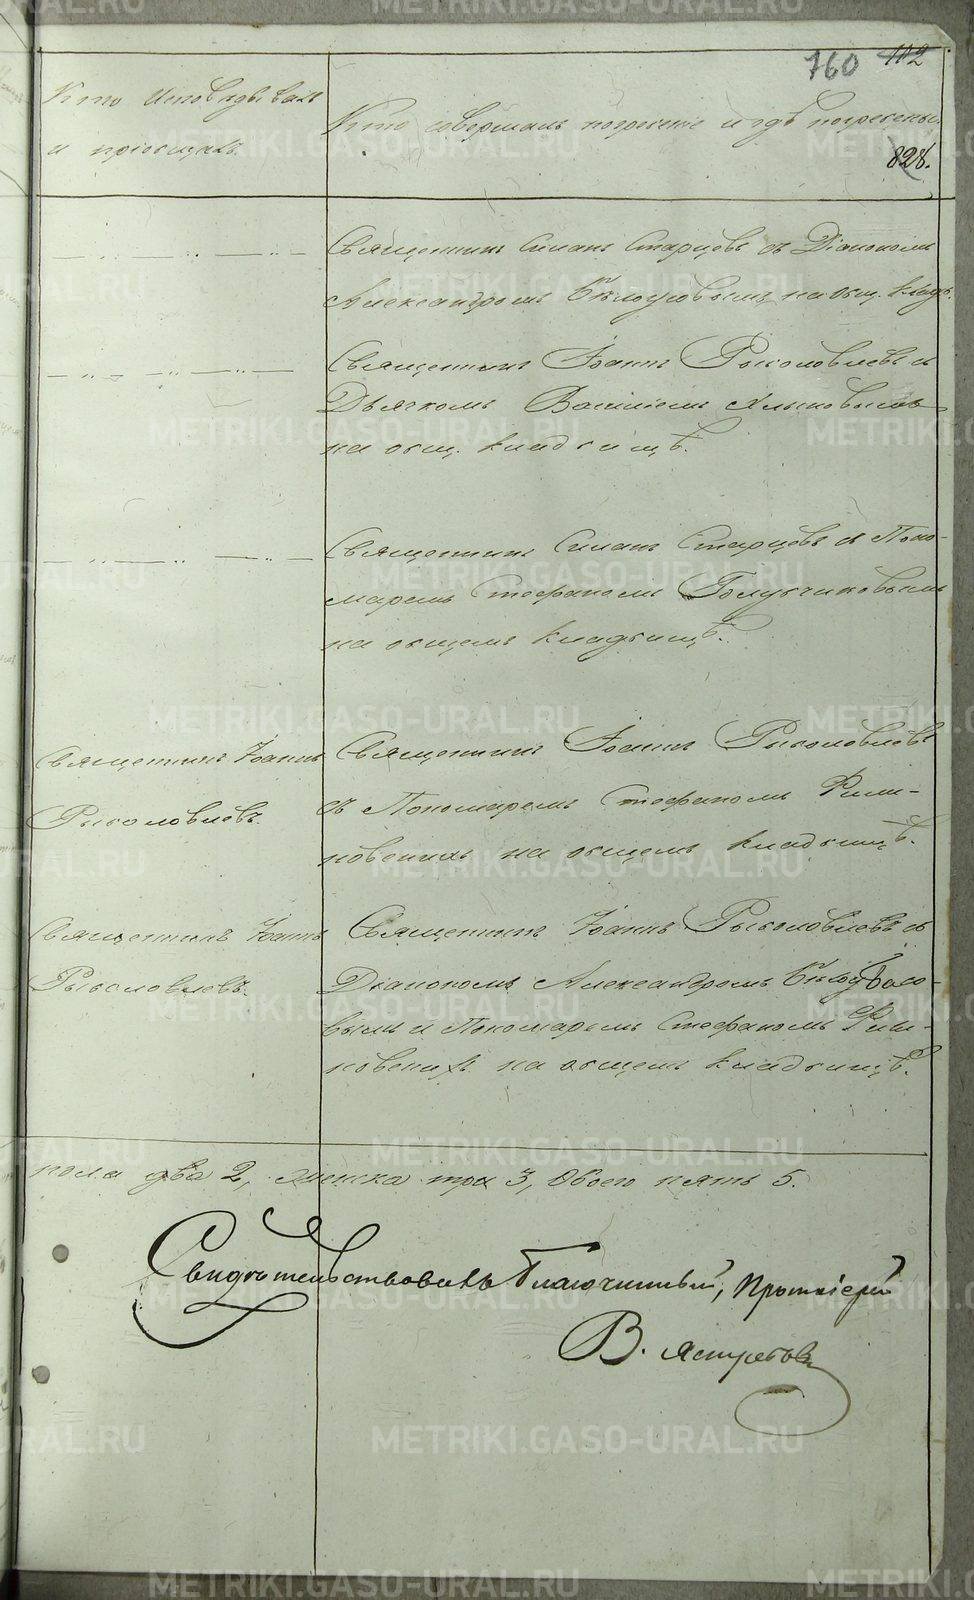 160 112
Кто исповѣдывалъ
и пріобщалъ.
Кто совершалъ погребеніе и гдѣ погребены.
828.
Священникъ Симонъ Старцовъ съ Діакономъ
Александромъ Бѣлоусовымъ на общ. кладб.
Священникъ Іоаннъ Рыболовлевъ съ
Дьячкомъ Василіемъ
на общ. кладбищѣ.
Священникъ Симонъ Старцовъ съ Поно-
маремъ Стефаномъ Голубчиковымъ
на общемъ кладбищѣ.
Священникъ Іоаннъ
Рыболовлевъ.
Священникъ Іоаннъ Рыболовлевъ
съ Пономаремъ Стефаномъ
на общемъ кладбищѣ.
Священникъ Іоаннъ
Рыболовлевъ.
Священникъ Іоаннъ Рыболовлевъ съ
Діакономъ Александромъ
вымъ и Пономаремъ Стефаномъ
на общемъ кладбищѣ.
пола два 2, женска три 3, обоего пять 5.
Свидѣтельствовалъ Благочинный, Протоіерей
В. Ястребовъ
METRIKI.GASO-URAL.RU